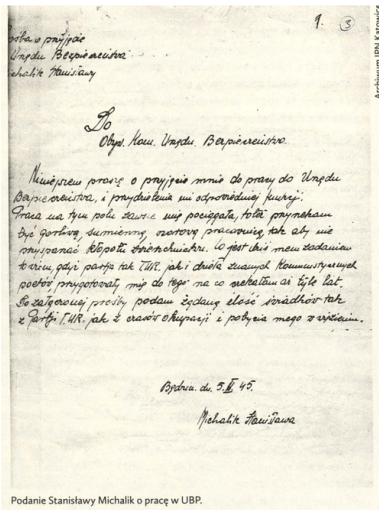 9. 3
Archiwum IPN Katowice
prośba o przyjęcie
Urzędu Bezpieczeństwa
Michalik Stanisławy
Do
Obyw. Kom. Urzędu. Bezpieczeństwa.
Niniejszem proszę o przyjęcie mnie do pracy do Urzędu
Bezpieczeństwa, i przydzielenie mi odpowiedniej funkcji.
Praca na tym polu zawsze mię pociągała, toteż przyrzekam
być gorliwą, sumienną, wzorową pracownicą, tak aby nie
przyspażać kłopotu zwierzchnictwu. Co jest dziś mem zadaniem
to wiem, gdyż partja tak T.U.R. jak i dzieła znanych Kommustycznych
poetów, przygotowały mię do tego na co czekałam aż tyle lat.
Do załączonej prośby podam żądaną ilość świadków tak
z Partji T.U.R. jak z czasów okupacji i pobycia mego w więzieniu.
Będzin. dn. 45.
Michalik Stanisława
Podanie Stanisławy Michalik o pracę w UBP.